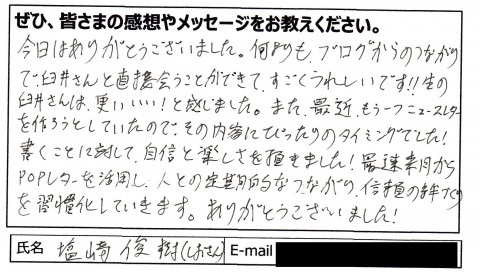 ぜひ、皆さまの感想やメッセージをお教えください。
今日はありがとうございました。何よりも、ブログからのつながり
で臼井さんと直接会うことができて、すごくうれしいです!!生の
臼井さんは、更にいい!と感じました。また、最近、もう一つニュースレター
を作ろうとしていたので、その内容にぴったりのタイミングでした!
書くことに対して、自信と楽しさを頂きました!最速来月から
POPレターを活用し、人との定期的なつながり、信頼の絆づくり
を習慣化していきます。ありがとうございました!
氏名 塩﨑 俊樹(しおさん) E-mail